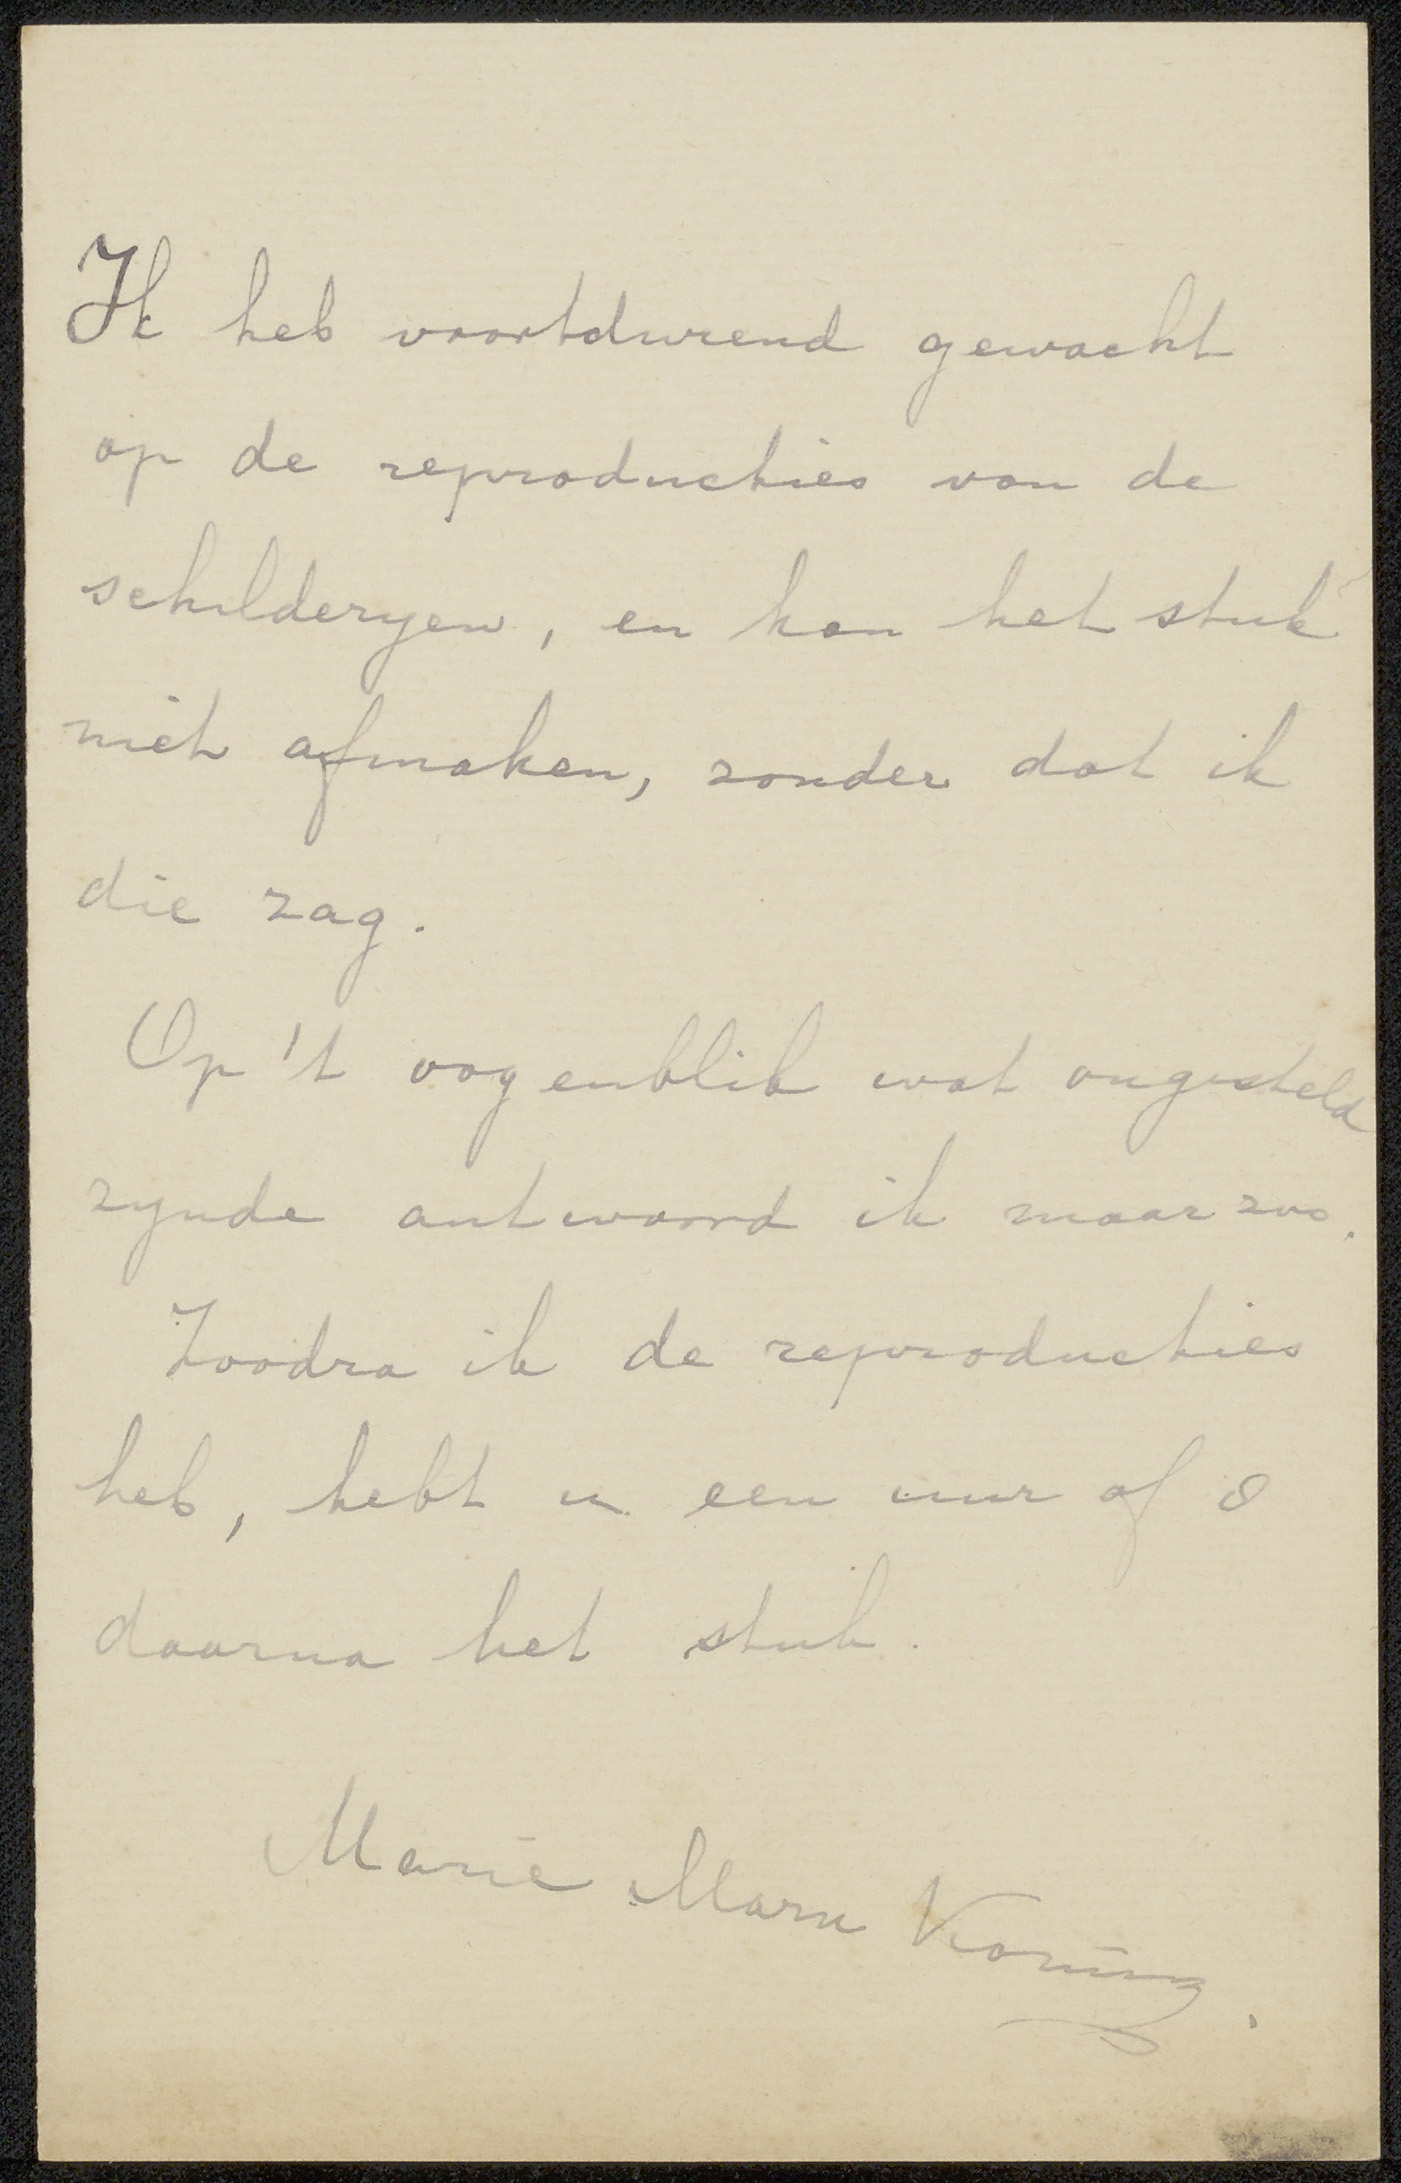 Ik heb voortdurend gewacht
op de reproducties van de
schilderyen, en kan het stuk
niet afmaken, zonder dat ik
die zag.
Op 't oogenblik wat ongesteld
zynde antwoord ik maar zoo.
Zoodra ik de reproducties
heb, hebt u een uur of 8
daarna het stuk.
Marie Marx Koning.